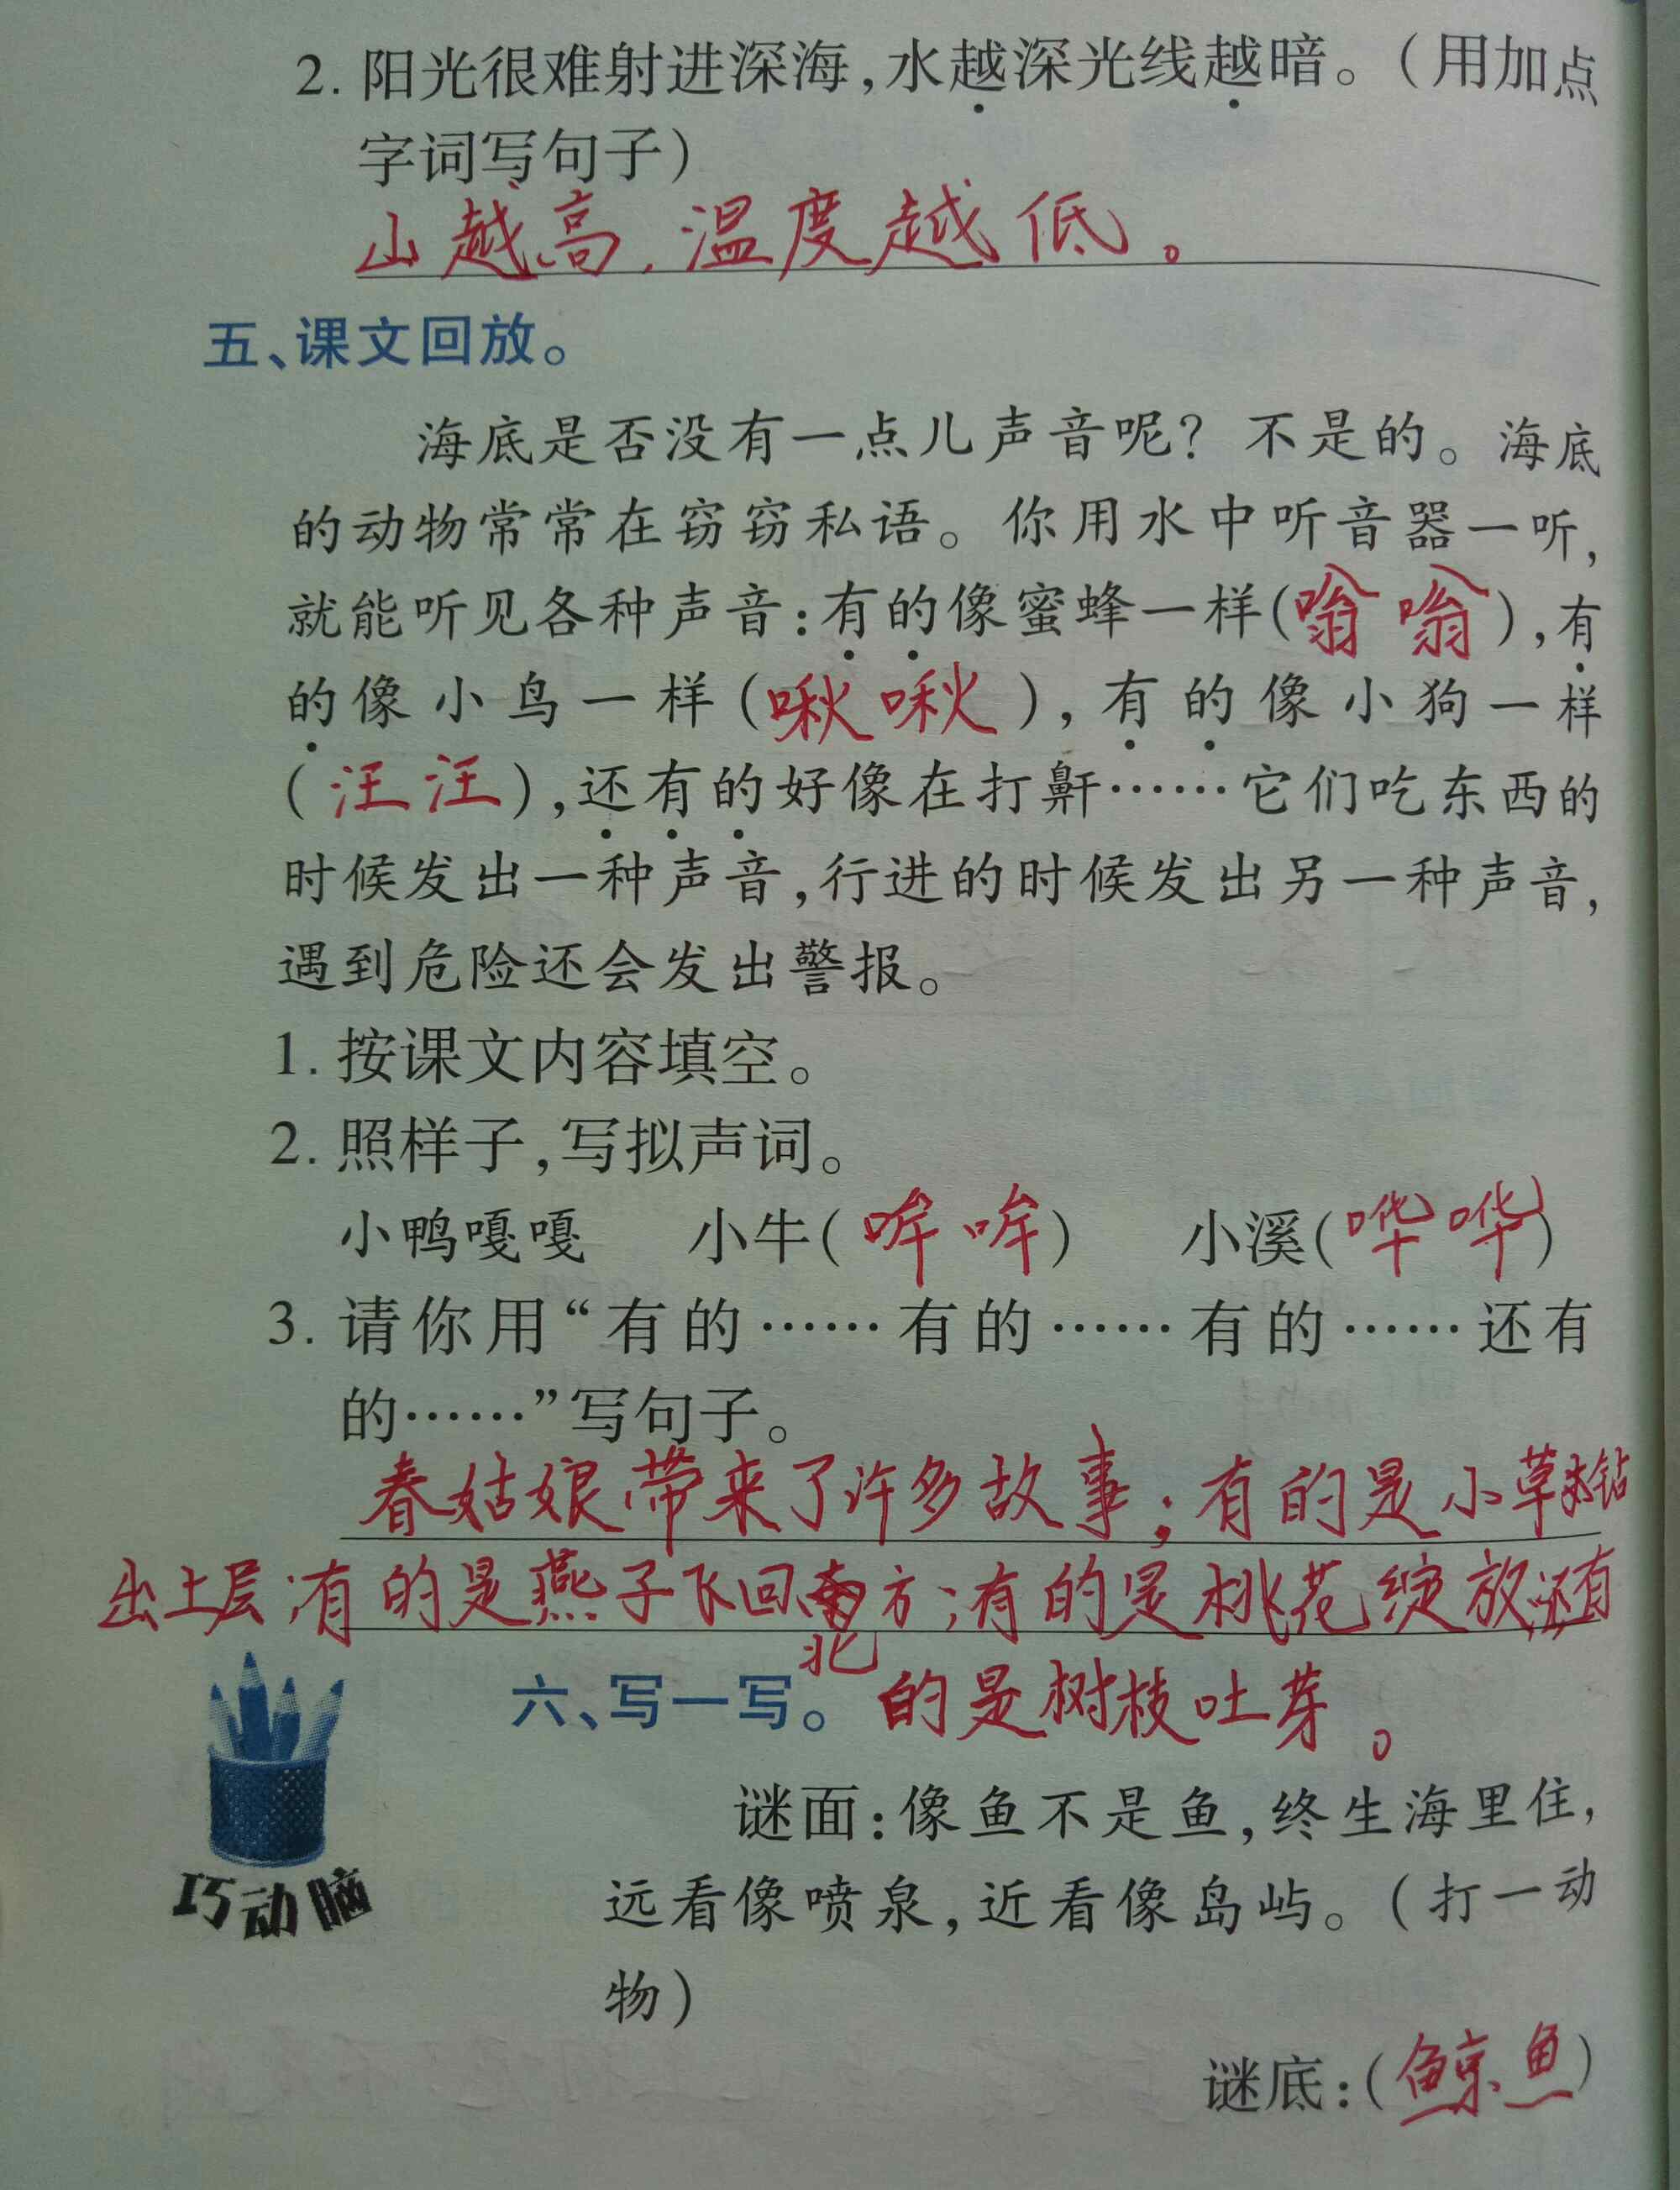 2. 阳光很难射进深海,水越深光线越暗。(用加点
字词写句子)
山越高,温度越低。
五、课文回放。
海底是否没有一点儿声音呢?不是的。海底
的动物常常在窃窃私语。你用水中听音器一听,
就能听见各种声音:有的像蜜蜂一样(嗡嗡),有
的像小鸟一样(啾啾),有的像小狗一样
(汪汪),还有的好像在打鼾……它们吃东西的
时候发出一种声音,行进的时候发出另一种声音,
遇到危险还会发出警报。
1. 按课文内容填空。
2. 照样子,写拟声词。
小鸭嘎嘎 小牛(哞哞) 小溪(哗哗)
3. 请你用“有的……有的……有的……还有
的……”写句子。
春姑娘带来了许多故事;有的是小草钻
出土层;有的是燕子飞回北方;有的是桃花绽放;还有
六、写一写。 的是树枝吐芽。
谜面:像鱼不是鱼,终生海里住,
远看像喷泉,近看像岛屿。(打一动
物)
巧动脑
谜底:(鲸鱼)